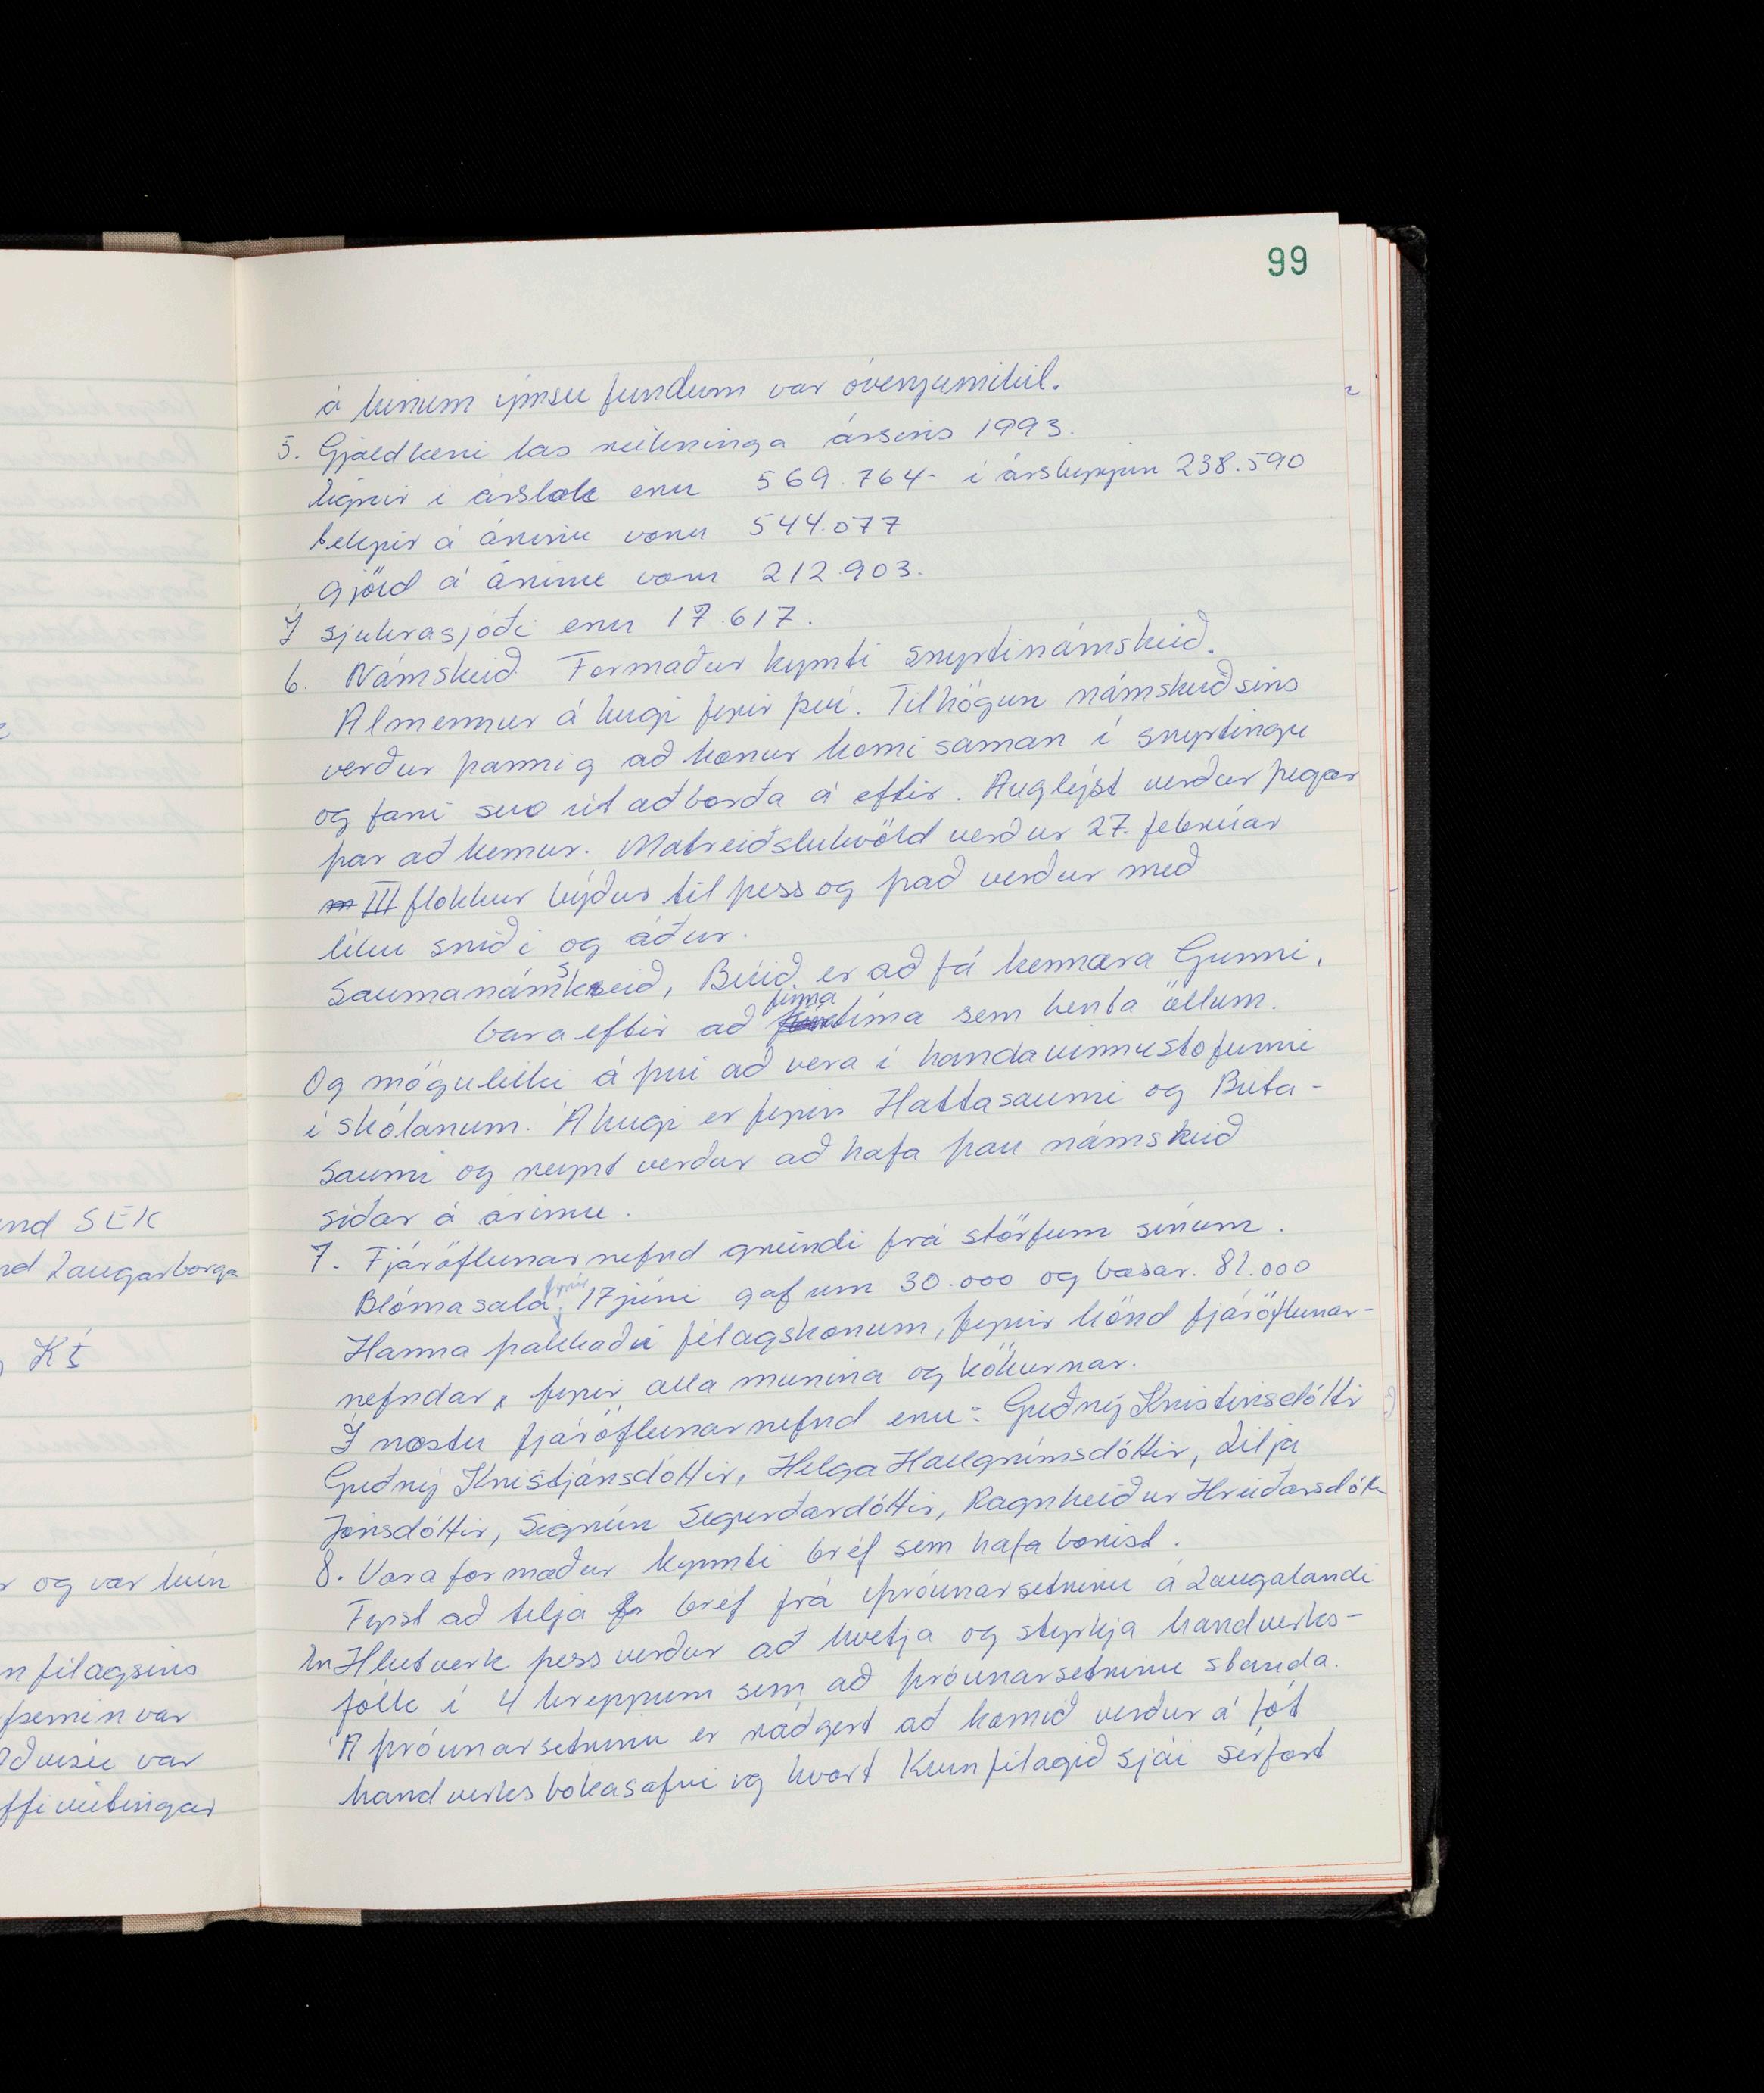 99
á hinum ýmsu fundum var óvenjumikil.
5. Gjaldkeri las reikninga ársins 1993.
Eignir í árslok eru 569.764- í ársbyrjun 238.590
tekjur á árinu voru 544.077
gjöld á árinu voru 212.903.
Í sjúkrasjóði eru 17.617.
6. Námskeið. Formaður kynnti snyrtinámskeið.
Almennur áhugi fyrir því. Tilhögun námskeiðsins
verður þannig að konur komi saman í snyrtingu
og fari svo út að borða á eftir. Auglýst verður þegar
þar að kemur. Matreiðslukvöld verður 27. febrúar
III flokkur býður til þess og það verður með
líku sniði og áður.
Saumanámskeið, Búið er að fá kennara Gunni,
bara eftir að finna tíma sem henta öllum.
Og möguleiki á því að vera í handavinnustofunni
í skólanum. Áhugi er fyrir Hattasaumi og Búta-
saumi og reynt verður að hafa þau námskeið
síðar á árinu.
7. Fjáröflunarnefnd greindi frá störfum sínum.
Blómasala fyrir 17 júni gaf um 30.000 og basar. 81.000
Hanna þakkaði félagskonum, fyrir hönd fjáröflunar-
nefndar, fyrir alla munina og kökurnar.
Í næstu fjáröflunarnefnd eru: Guðný Kristinsdóttir
Guðný Kristjánsdóttir, Helga Hallgrímsdóttir, Lilja
Jónsdóttir, Sigrún Sigurðardóttir, Ragnheiður Hreiðarsdóttir
8. Vara formaður kynnti bréf sem hafa borist.
Fyrst að telja bréf frá þróunarsetrinu á Laugalandi
Hlutverk þess verður að hvetja og styrkja handverks-
fólk í 4 hreppum sem að þróunarsetrinu standa.
Á þróunarsetrinu er ráðgert að komið verður á fót
handverksbókasafni og hvort Kvenfélagið sjái sérfært
nd SEK
nd Laugarborga
KÍ
r og var hún
n félagsins
þsemin var
var
ffiveitingar